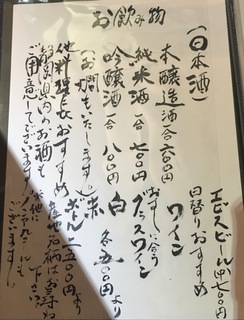 お飲み物
(日本酒)
本醸造酒 一合 六〇〇円
純米酒 一合 七〇〇円
吟醸酒 一合 八〇〇円
(お燗もいたします。)
他料理長おすすめ
静岡県内のお酒も
ご用意してございます!
エビスビール 中 七〇〇円
日替りおすすめ
ワイン
おすしに合う
グラスワイン
白
赤
各五〇〇円より
ボトル 一五〇〇円より
ノンアルコールも
ございます。